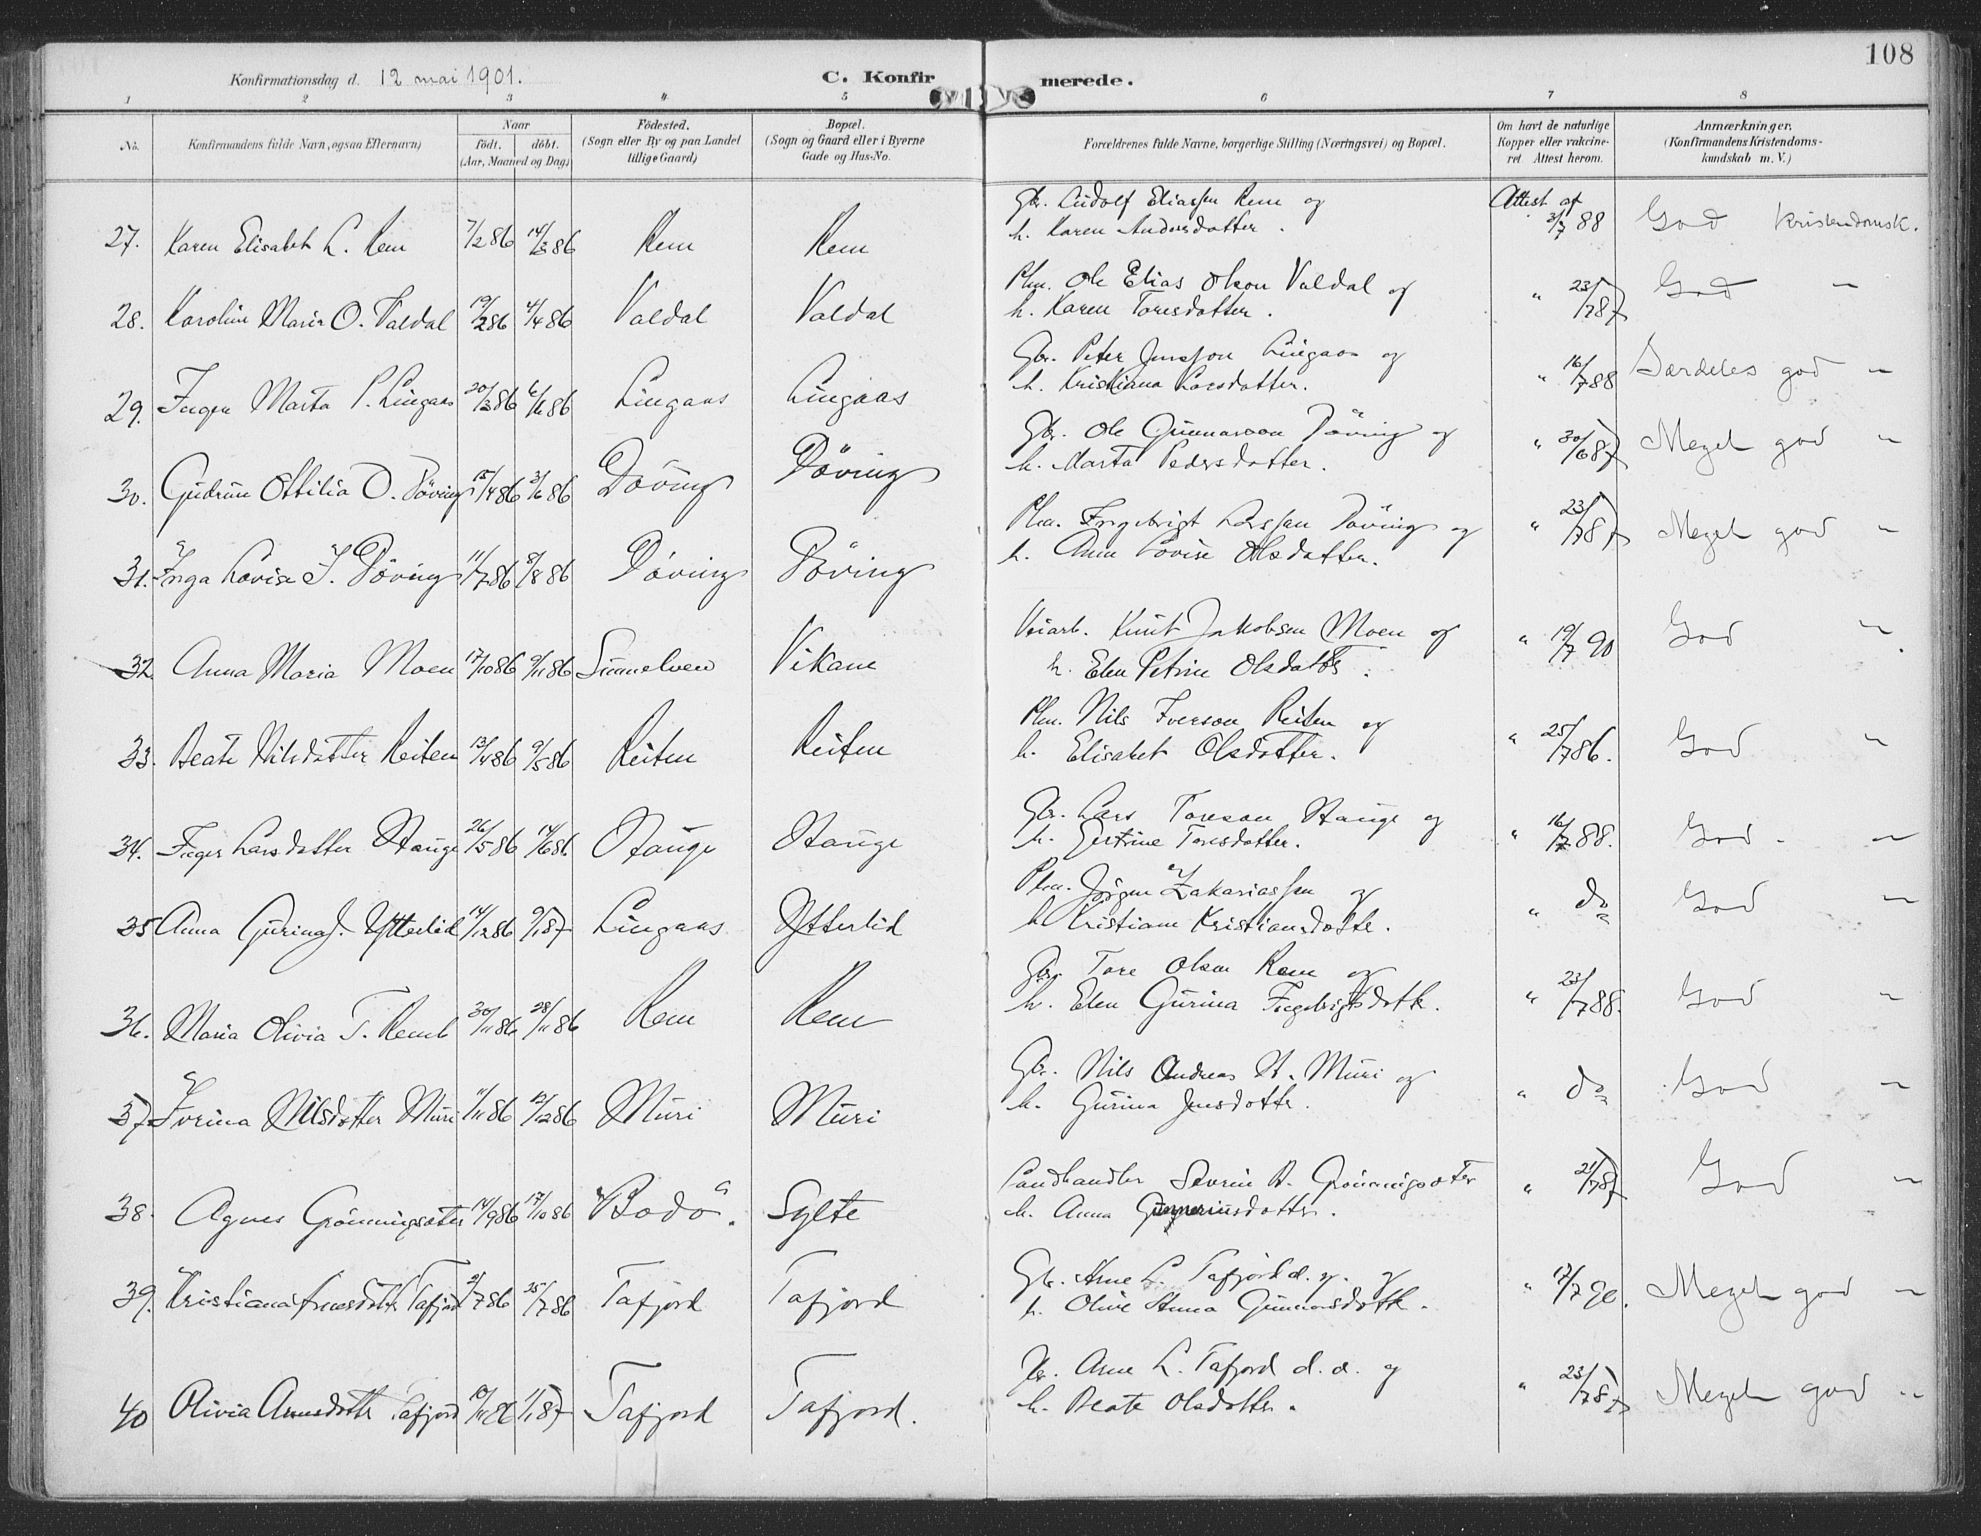 108
Konfirmationsdag d. 12 mai 1901. C. Konfirmerede.
1 2 3 4 5 6 7 8
No. Konfirmandens fulde Navn, ogsaa Efternavn) Naar født. døbt. (Aar, Maaned og Dag) Fødested. (Sogn eller By og paa Landet tillige Gaard) Bopæl. (Sogn og Gaard eller i Byerne Gade og Hus-No. Forældrenes fulde Navne, borgerlige Stilling (Næringsvei) og Bopæl. Om havt de naturlige Kopper eller vakcineret. Attest herom. Anmærkninger. (Konfirmandens Kristendomskundskab m. V.)
Gbr. Ludolf Eliassen Rem og Attest af
27. Karen Elisabet L. Rem 7/2 86 14/3 86 Rem Rem h. Karen Andersdatter. 3/7 88 God Kristendomsk.
Plm. Ole Elias Olson Valdal og
28. Karoline Marie O. Valdal 19/2 86 4/4 86 Valdal Valdal h. Karen Toresdatter. " 23/7 87 God "
Gbr. Peter Jensson Lingaas og
29. Inger Marta P. Lingaas 20/3 86 Lingaas Lingaas h. Kristiana Larsdatter. " 16/7 88 Særdeles god "
Gbr. Ole Gunnarson Döving og
30. Gudrun Ottilia O. Döving 15/4 86 3/6 86 Döving Döving h. Marta Pedersdatter. " 30/6 87 Meget god "
Plm. Ingebrigt Larssen Döving og
31. Inga Lovise I. Döving 11/7 86 8/8 86 Döving Döving h. Anna Lovise Olsdatter. " 23/7 87 Meget god "
Veiarb. Knut Jakobsen Moen og
32 Anna Maria Moen 17/10 86 9/11 86 Sunnelven Vikane h. Elen Petrine Olsdatter. " 19/7 90 God "
Plm. Nils Iverson Reiten og
33. Beate Nilsdatter Reiten 13/4 86 9/5 86 Reiten Reiten h. Elisabet Olsdatter. " 25/7 86. God "
Gbr. Lars Toreson Stauge og
34. Inger Larsdatter Stauge 26/5 86 14/6 86 Stauge Stauge h. Gertrine Toresdatter. " 16/7 88. God "
Plm. Jörgen Zakariassen og
35 Anna Gurina J. Ytterlid 14/12 86 9/1 87 Lingaas Ytterlid h. Kristiane Kristiansdatter. " do God "
Gbr. Tore Olsen Rem og
36. Maria Olivia T. Rem 28/11 86 Rem Rem h. Elen Gurina Ingebrigtsdatter. " 23/7 88. God "
Gbr. Nils Andreas N. Muri og
37 Ivrina Nilsdatter Muri 1/11 86 Muri Muri h. Gurina Jensdatter. " do God "
Landhandler Severin A. Grönningsæter
38. Agnes Grönningsæter 14/9 86 17/10 86 Bodö. Sylte h. Anna " 21/7 87 God "
Gbr. Arne L. Tafjord d. y. og
39. Kristiana Arnesdatter Tafjord 2/7 86 25/7 86 Tafjord Tafjord h. Olive Anna Gunnarsdatter. " 17/7 90. Meget god "
Gbr. Arne L. Tafjord d. æ. og
40 Olivia Arnesdatter Tafjord 10/11 86 1/1 87 Tafjord Tafjord. h. Beate Olsdatter. " 23/7 87 Meget god "